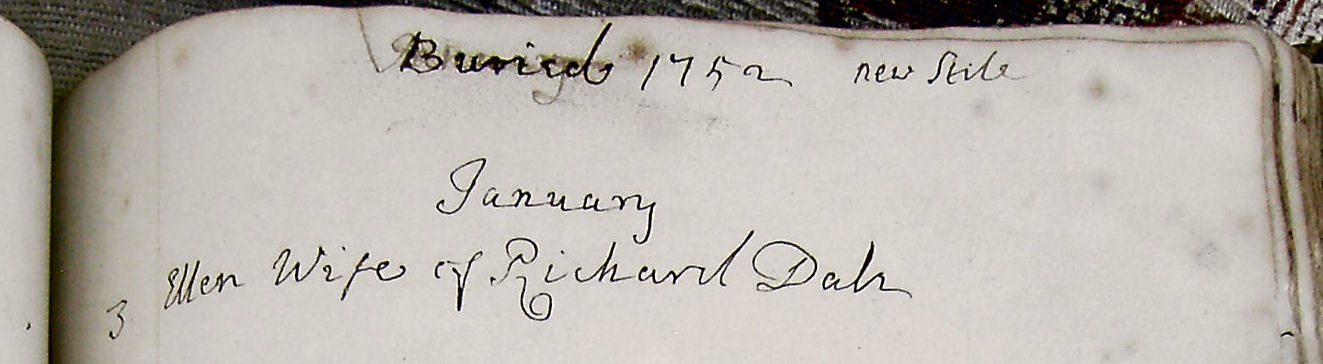 Buried 1752 new Stile
January
3 Ellen Wife of Richard Dale